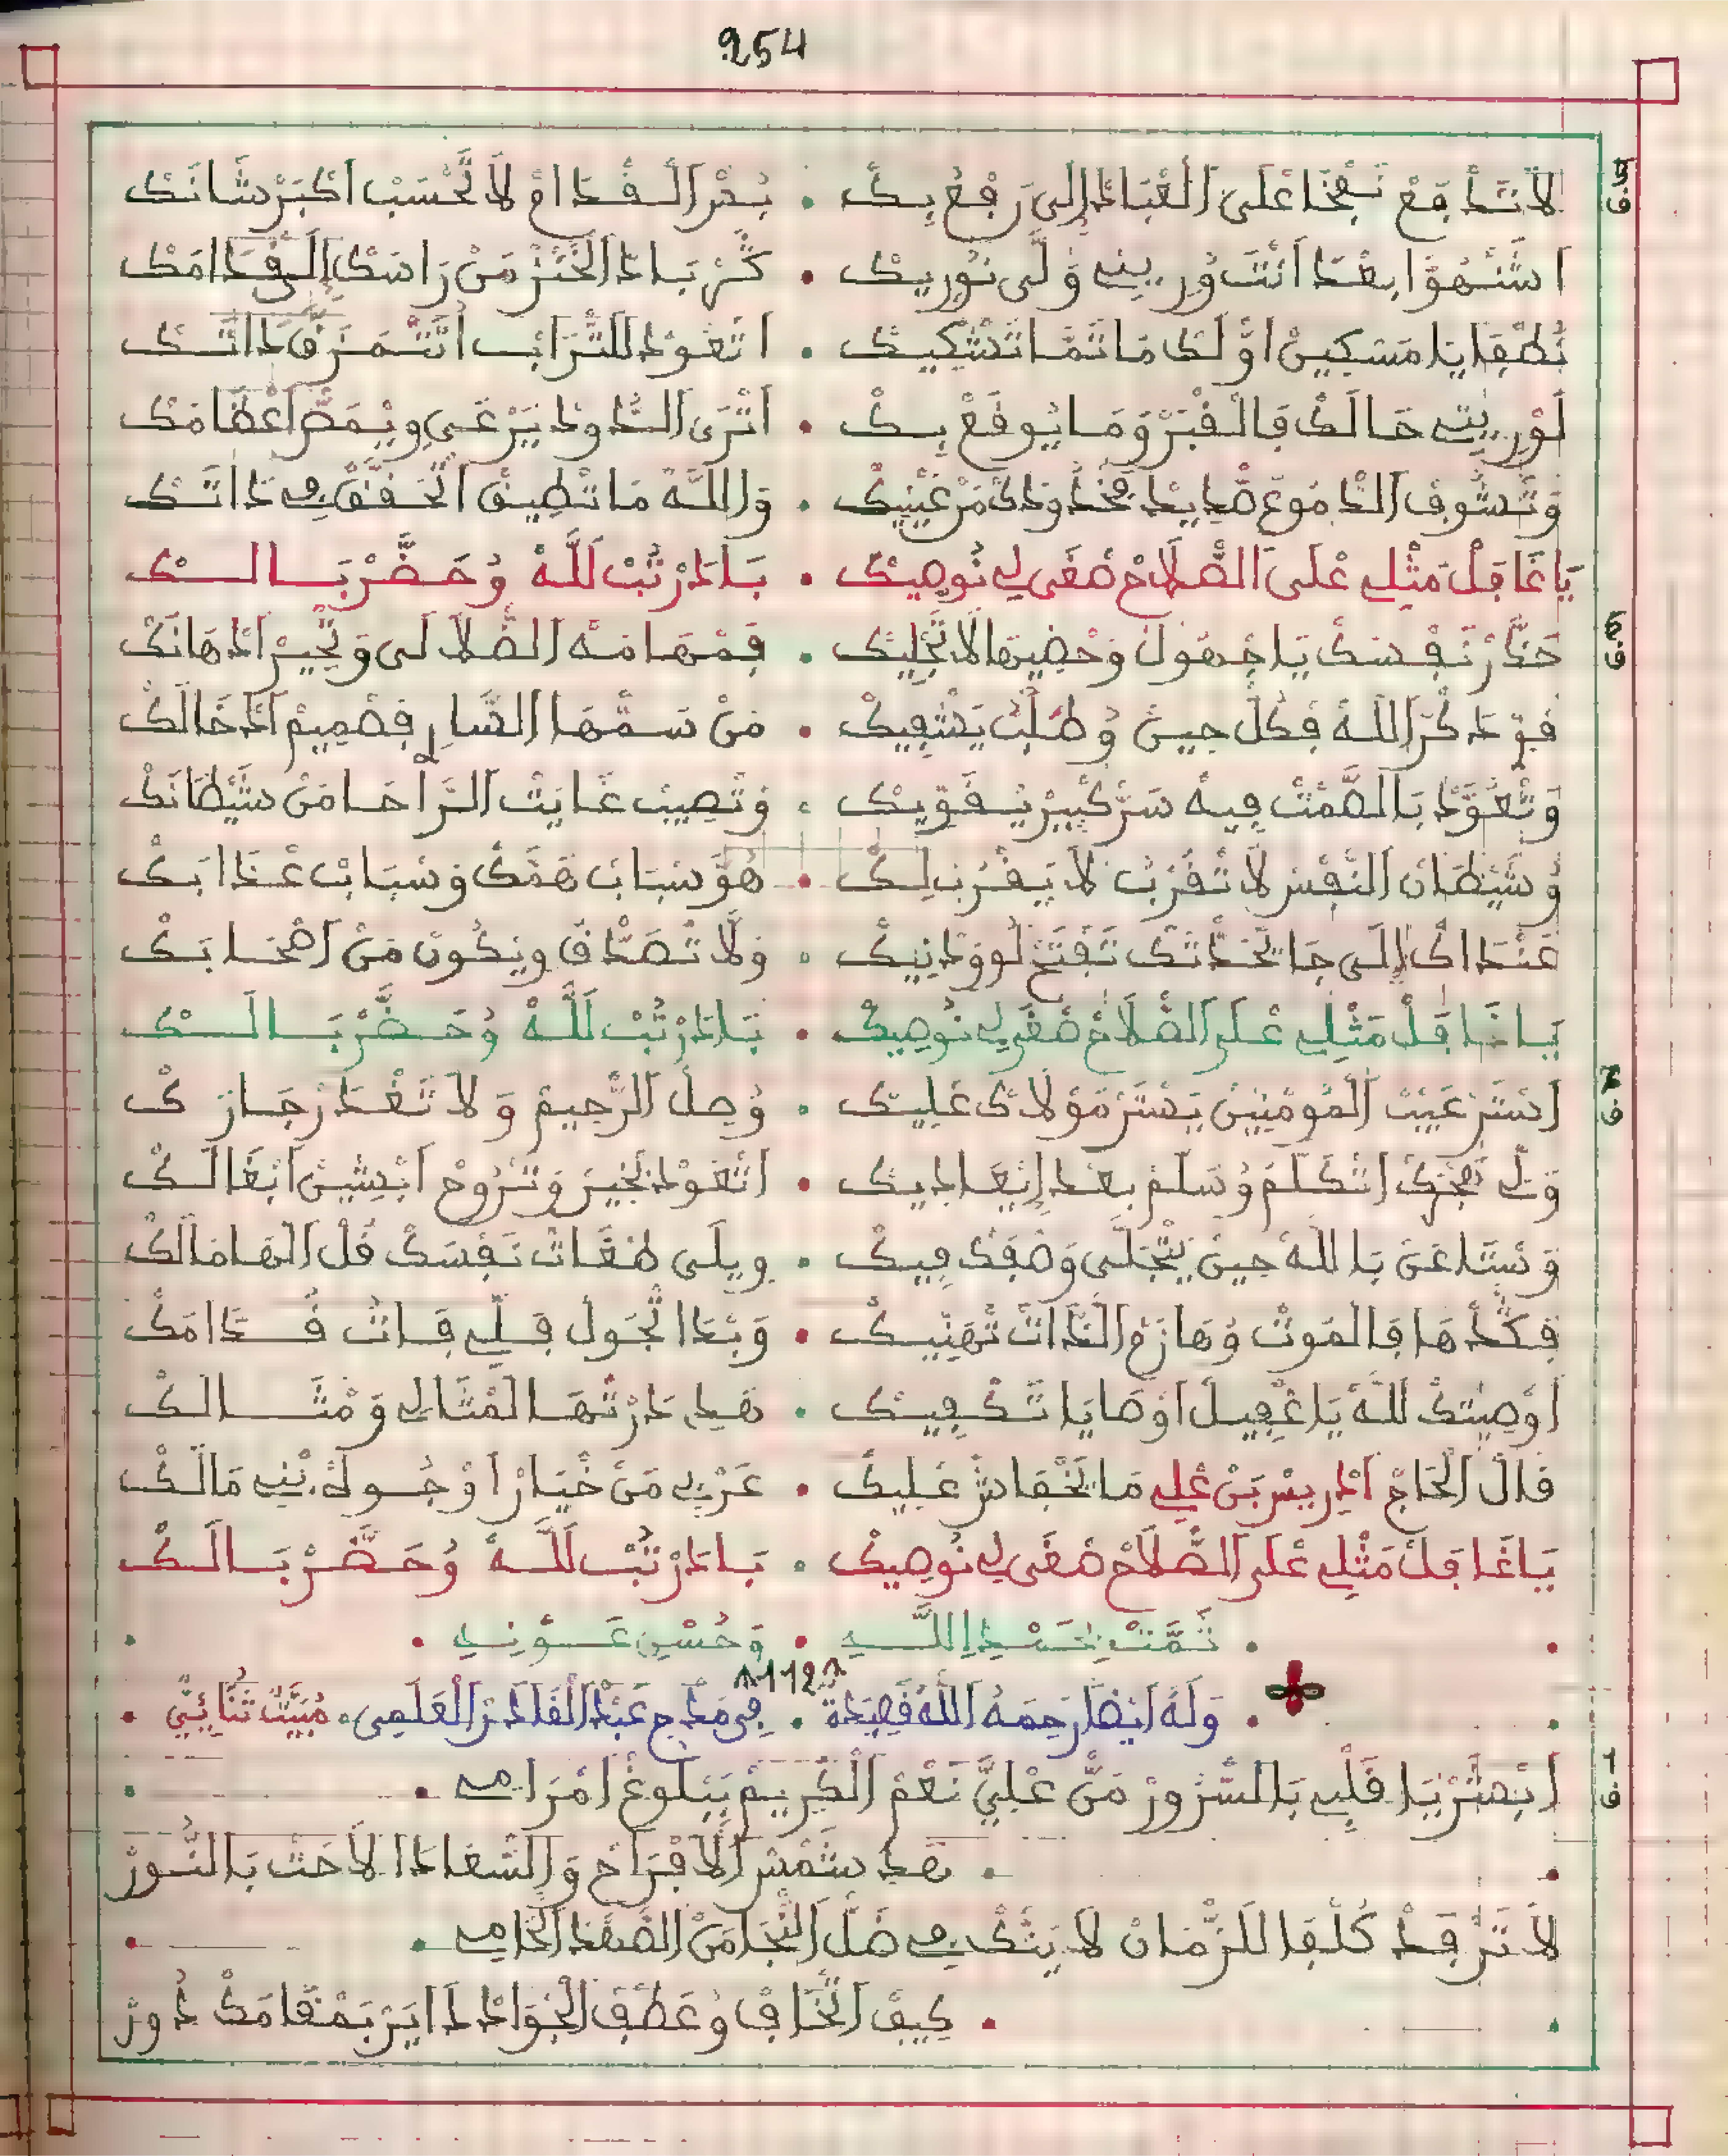 254
لَا تَدْفَعْ نَفْخَا عْلَى الْعْبَادْ إِلَى رَفْعْ بِكْ . بُحْرْ الْفْدَامْ لَا تَحْسَبْ اكْبَرْ شَانَكْ
ف
اشْنَهُوَّ ابعْدْ انْتَ وُرِينِي وَلَّى نْوُرِيكْ . كْرْبَادْ الْخَنْزْ مَنْ رَاسَكْ إِلَى فْدَامَكْ
نُطْفَا يَا مَسْكِينْ اوَّلَكْ مَا تَمَّا تَشْكِيكْ . اتْعُودْ للتْرَابْ انْتْمَزَّقْ دَاتَكْ
لَوْ رِيتِي حَالَكْ فَالْقْبَرْ وَمَا يُوقَعْ بِكْ . اتْرَى الدُّودْ يَرْعَى وِيْمَصّْ اعْظَامَكْ
وَتْشُوفْ الدّْمُوعْ صْدِيدْ فخْدُودَكْ مَنْ عَيْنِيكْ . وَاللَّهْ مَا تْطِيقْ الْخَفَّقْ فِي دَاتَكْ
يَا غَافَلْ مَثْلِي عْلَى الصّْلَاحْ صْغَى لِي نُوصِيكْ . بَادَرْ تُبْ لَلَّهْ وُحَضَّرْ بَالَكْ
حَدَّرْ نَفْسَكْ يَا جْهُولْ وَحْضِيهَا لَا تَجْلِيكْ . فَمْهَامَهْ الضّْلَالَى وَتْحِيرْ ادْهَانَكْ
6 ف
فَوَّدْ كْرْ اللَّهْ فكُلّْ حِينْ وُطْلَبْ يَشْفِيكْ . مَنْ سَمّْهَا السَّارِي فصْمِيمْ ادْخَالَكْ
وَتْعَوَّدْ بَالصَّمْتْ فِيهْ سَرّْ كْبِيرْ يْقَوِّيكْ . وَتْصِيبْ غَايَتْ الرَّاحَا مَنْ شَيْطَانَكْ
وُشَيْطَانْ النَّفْسْ لَا تْقَرْبْ لَا يَقْرَبْ لِكْ . هُوَّ سْبَابْ هَمَّكْ وَسْبَابْ عْدَابَكْ
عَنْدَاكْ إِلَى جَا يْحَدْثَكْ تَفْتَحْ لُو وَدْنِيكْ . وَلَا تْصَدَّقْ وِيكُونْ مَنْ اصْحَابَكْ
يَا غَافَلْ مَثْلِي عْلَى الصّْلَاحْ صْغَى لِي نُوصِيكْ . بَادَرْ تُبْ لَلَّهْ وُحَضَّرْ بَالَكْ
اسْتَرْ عَيْبْ الْمُومْنِينْ يَسْتَرْ مُولَاكْ عْلِيكْ . وُصِلْ الرّْحِيمْ وَلَا تَغْدَرْ جَارَكْ
7 ف
وَلِّي هْجْرَكْ اتْكَلَّمْ وُسَلَّمْ بعْدْ إِيعَادِيكْ . اتْعُودْ بْخِيرْ وَتْرُوحْ ابْشِينْ ابْغَالَكْ
وَسْتَاعَنْ بَاللَّهْ حِينْ يْتْجَلَّى وَصْفَكْ فِيكْ . وِيلَى طْغَاتْ نَفْسَكْ قُلْ الْهَا مَالَكْ
فكَّدْهَا فَالْمُوتْ وُهَازَمْ الدَّاتْ تْهَنِّيكْ . وَبْدَا تْجُولْ فَلِّي فَاتْ قُدَّامَكْ
اوْصِيتَكْ للَّهْ يَا غْفِيلْ اوْصَايَا تَكْفِيكْ . هَدِي دَرْتْهَا لَمْثَالِي وَمْثَالَكْ
قَالْ الْحَاجْ ادْرِيسْ بَنْ عْلِي مَا يَخْفَاشْ عْلِيكْ . عَرْبِي مَنْ خْيَارْ اوْجُولَهْ بْنِي مَالَكْ
يَا غَافَلْ مَثْلِي عْلَى الصّْلَاحْ صْغَى لِي نُوصِيكْ . بَادَرْ تُبْ لَلَّهْ وُحَضَّرْ بَالَكْ
تَمَّتْ بْحَمْدِ اللَّهِ . وَحُسْنِ عَوْنِهِ
112
وَلَهُ أَيْضًا رَحِمَهُ اللَّهُ قَصِيدَة . فِي مَدْحِ عَبْدْ الْقَادَرْ الْعَلَمِي . مْبَيَّتْ ثُنَائِيّ
ابْشَرْ يَا قَلْبِي بَالسّْرُورْ مَنّْ عْلِيَّ نَعْمْ الْكْرِيمْ بَبْلُوغْ امْرَامِي
1 ف
هَدِ شَمْسْ الَافْرَاحْ وَالسّْعَادَا لَاحَتْ بَالنُّورْ
لَا تَرْفَدْ كُلْفَا للزّْمَانْ لَا يَنْكْدِي ضَلّْ النّْجَا مَنْ الصّْهْدْ الْحَامِي
كِيفْ اتْخَافْ وُعَطْفْ الْجْوَادْ دَايَرْ بَمْقَامَكْ دُورْ